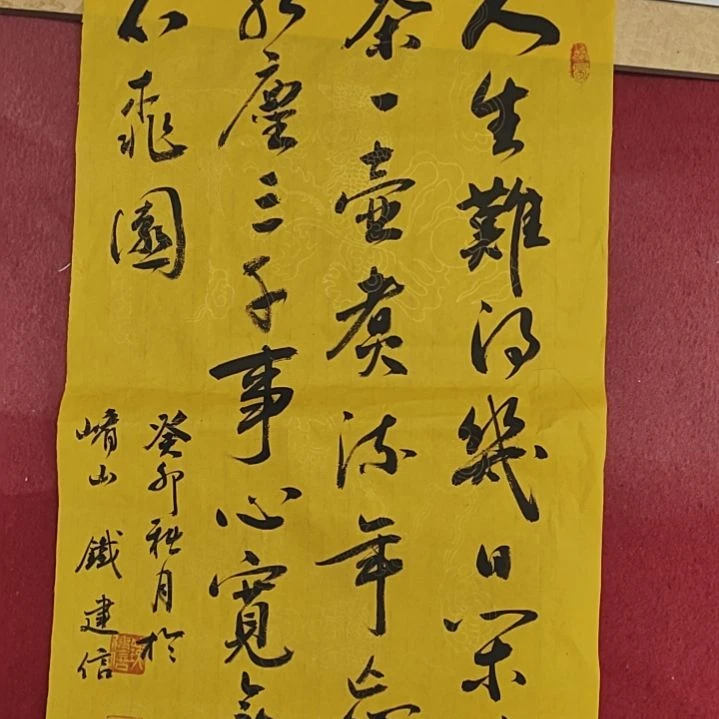 人生難得幾日閑
茶一壺煮流年
塵三千事心寬
桃園
癸卯秋月於
崤山 鐵建信